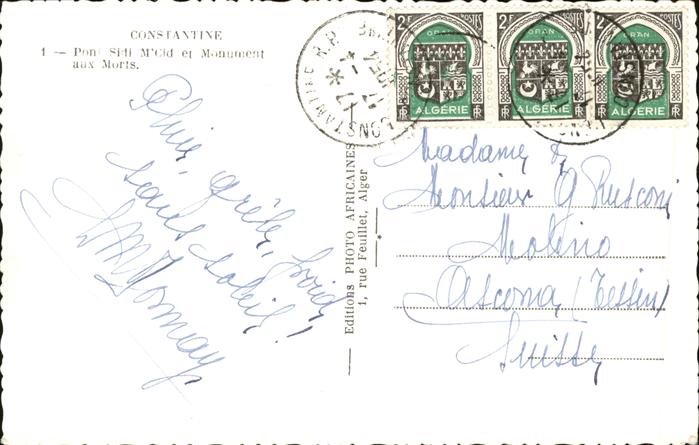 CONSTANTINE
1 — Pont Sidi M'Cid et Monument
aux Morts.
Pluie, grêle, froid,
sans soleil!
Editions PHOTO AFRICAINES
1, rue Feuillet, Alger
2F POSTES
ORAN
RF ALGÉRIE RF
2F POSTES
ORAN
RF ALGÉRIE RF
2F POSTES
ORAN
RF ALGÉRIE RF
CONSTANTINE R.P.
Madame &
Monsieur G Rusconi
Molino
Ascona (Tessin)
Suisse